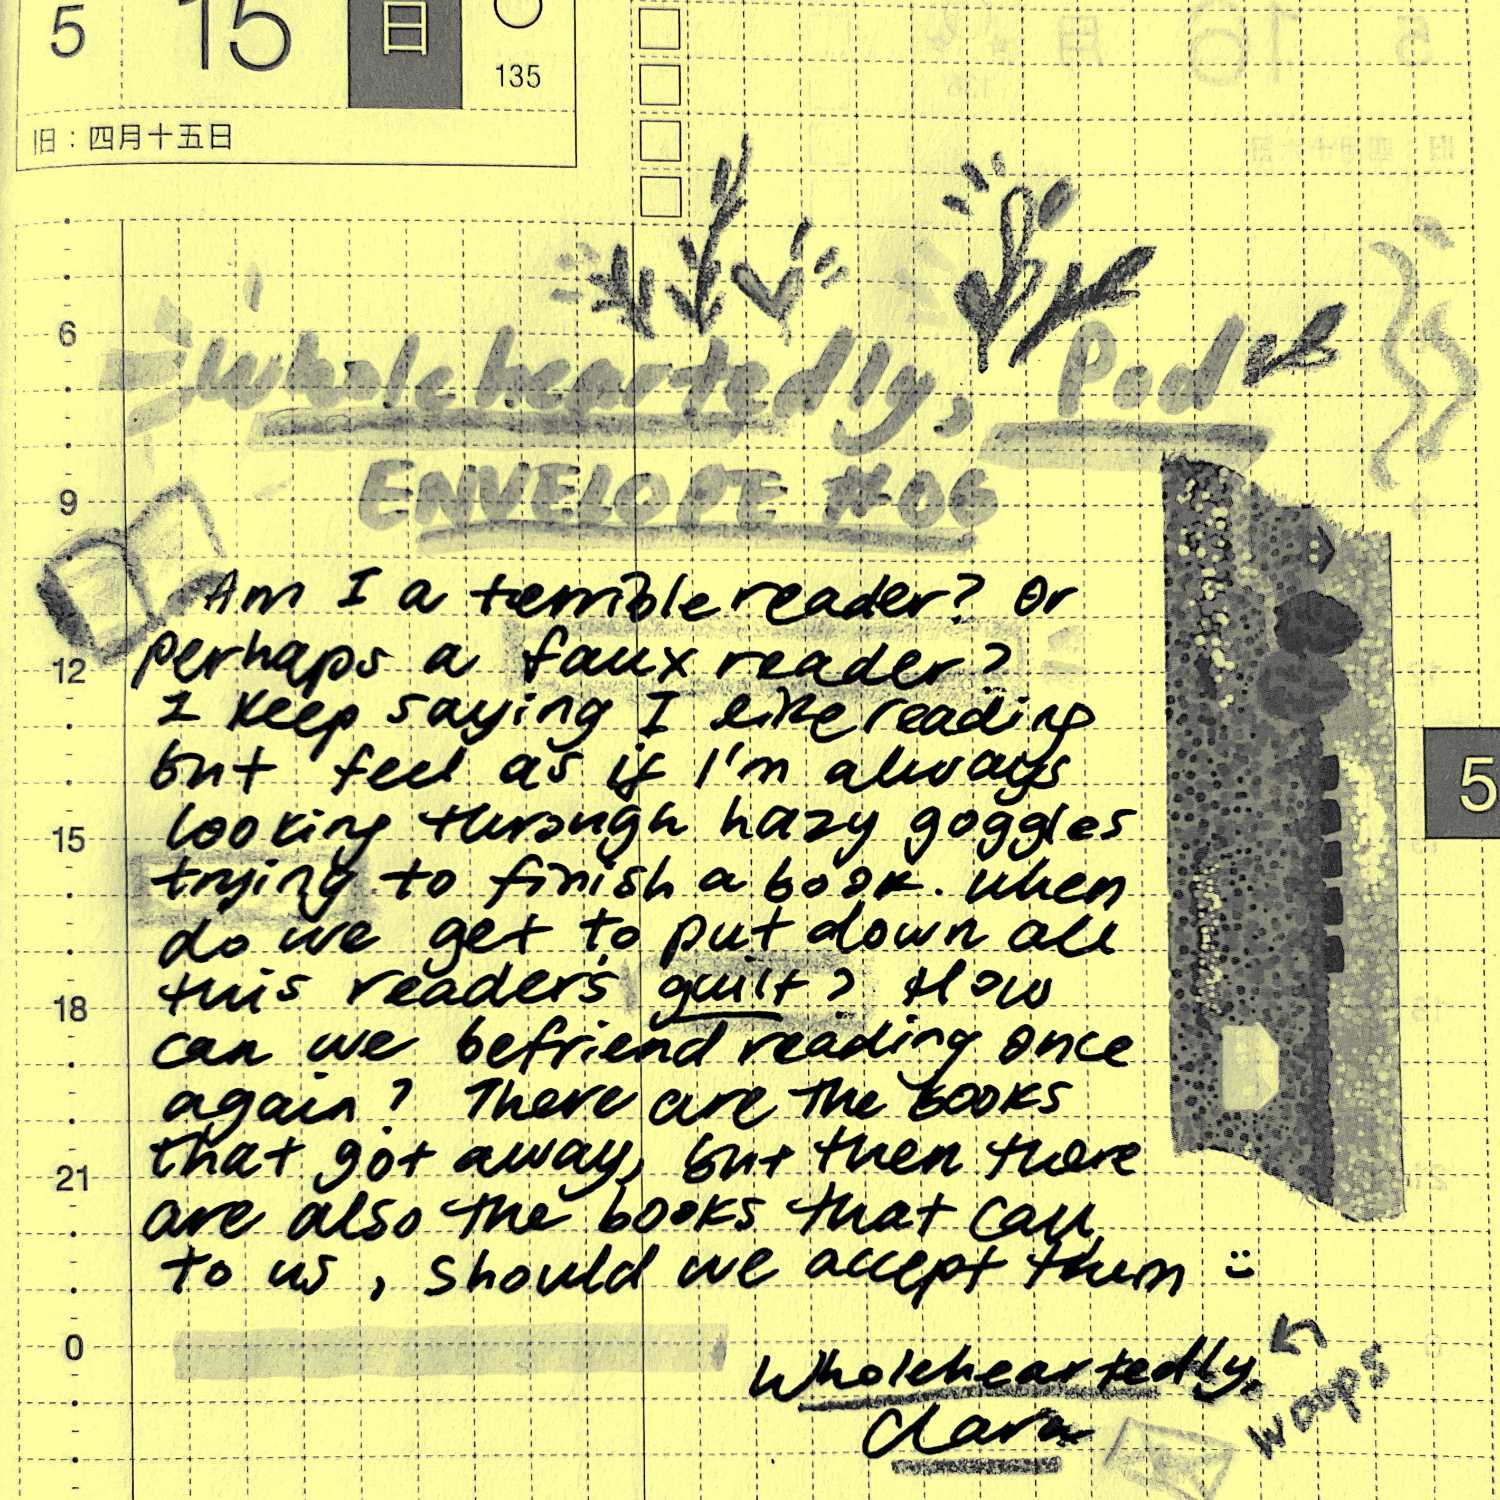 5 15 日
135
旧：四月十五日
Wholeheartedly, Pod
ENVELOPE #06
Am I a terrible reader? Or
perhaps a faux reader?
I keep saying I like reading
but feel as if I'm always
looking through hazy goggles
trying to finish a book. When
do we get to put down all
this reader's guilt? How
can we befriend reading once
again? There are the books
that got away, but then there
are also the books that call
to us, should we accept them :)
Wholeheartedly,
Clara
woops
6
9
12
15
18
21
0
5